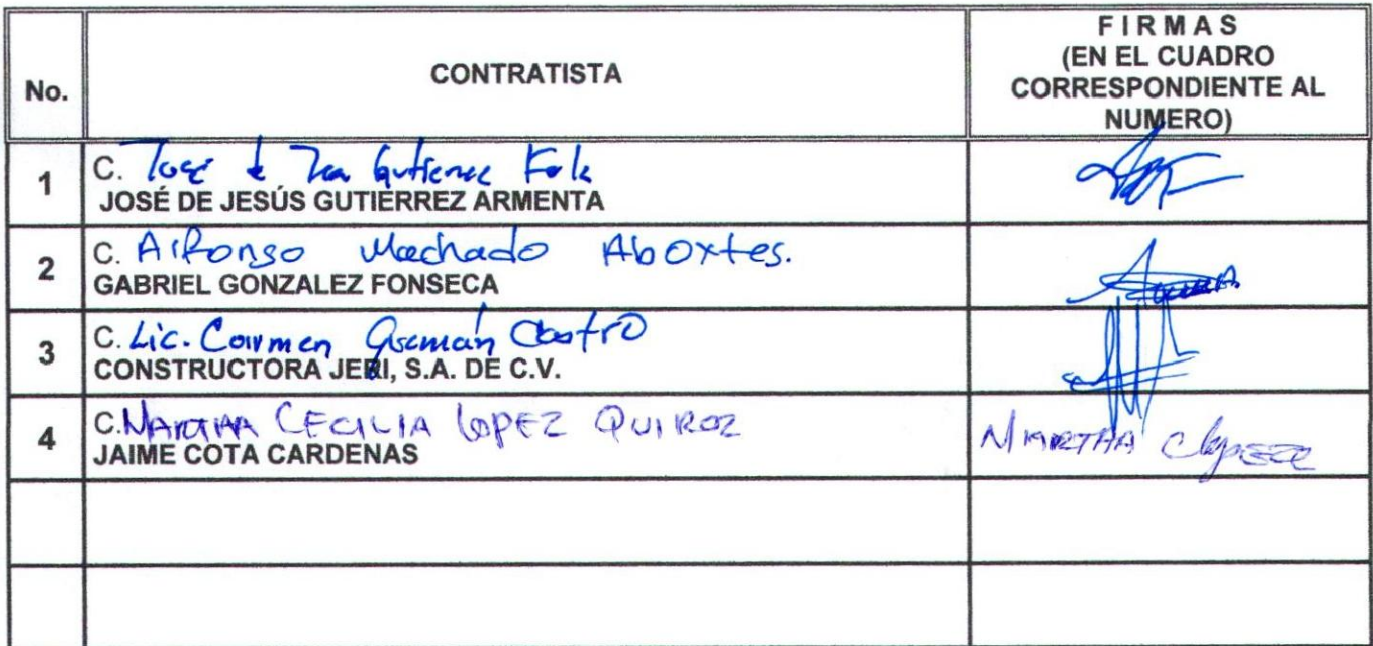 No.
CONTRATISTA
FIRMAS
(EN EL CUADRO
CORRESPONDIENTE AL
NUMERO)
1
C. José de Gutierrez
JOSÉ DE JESÚS GUTIERREZ ARMENTA
2
C. Alfonso Machado
GABRIEL GONZALEZ FONSECA
3
C. Lic. Carmen Guzmán Castro
CONSTRUCTORA JERI, S.A. DE C.V.
4
C. MARTHA CECILIA LOPEZ QUIROZ
MARTHA CLopez
JAIME COTA CARDENAS